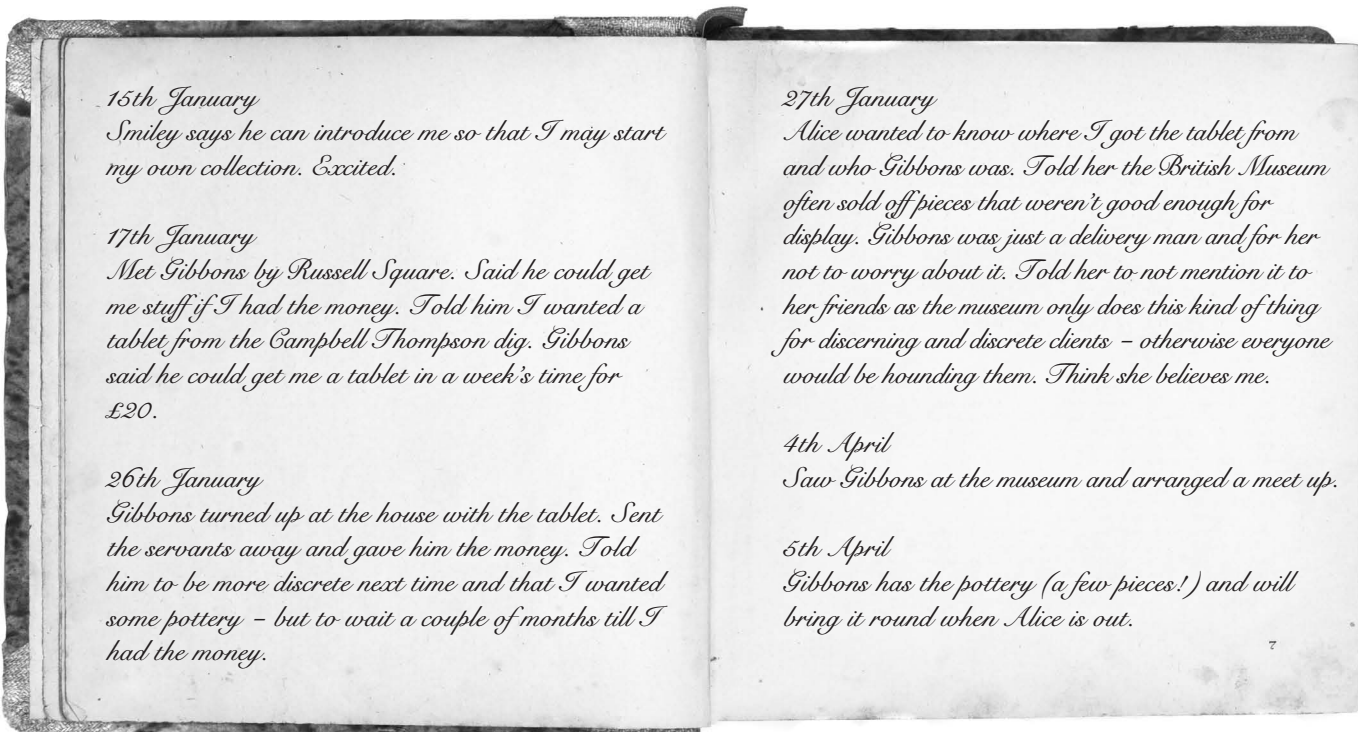 15th January
Smiley says he can introduce me so that I may start
my own collection. Excited.
17th January
Met Gibbons by Russell Square. Said he could get
me stuff if I had the money. Told him I wanted a
tablet from the Campbell Thompson dig. Gibbons
said he could get me a tablet in a week's time for
£20.
26th January
Gibbons turned up at the house with the tablet. Sent
the servants away and gave him the money. Told
him to be more discrete next time and that I wanted
some pottery – but to wait a couple of months till I
had the money.
27th January
Alice wanted to know where I got the tablet from
and who Gibbons was. Told her the British Museum
often sold off pieces that weren't good enough for
display. Gibbons was just a delivery man and for her
not to worry about it. Told her to not mention it to
her friends as the museum only does this kind of thing
for discerning and discrete clients – otherwise everyone
would be hounding them. Think she believes me.
4th April
Saw Gibbons at the museum and arranged a meet up.
5th April
Gibbons has the pottery (a few pieces!) and will
bring it round when Alice is out.
7